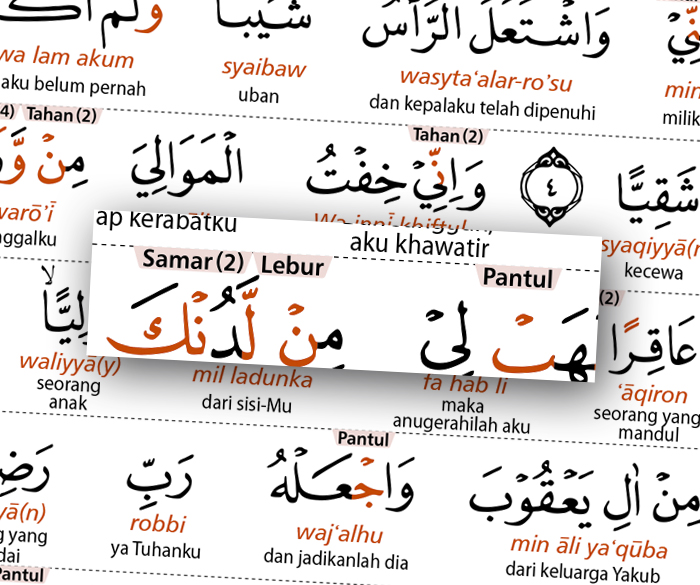 شَيْبًا وَاشْتَعَلَ الرَّأْسُ
wa lam akum syaibaw wasyta‘alar-ro’su
aku belum pernah uban dan kepalaku telah dipenuhi milik
4) Tahan (2) Tahan (2)
شَقِيًّا ٤ وَاِنِّيْ خِفْتُ الْمَوَالِيَ مِنْ
syaqiyyā(n
kecewa
ap kerabatku aku khawatir
Samar (2) Lebur Pantul
هَبْ لِيْ مِنْ لَّدُنْكَ
(2)
عَاقِرًا
waliyyā(y) mil ladunka fa hab lī ‘āqiron
seorang anak dari sisi-Mu maka anugerahilah aku seorang yang mandul
Pantul
مِنْ اٰلِ يَعْقُوْبَ وَاجْعَلْهُ رَبِّ
yā(n) robbi waj‘alhu min āli ya‘qūba
ya Tuhanku dan jadikanlah dia dari keluarga Yakub
Pantul